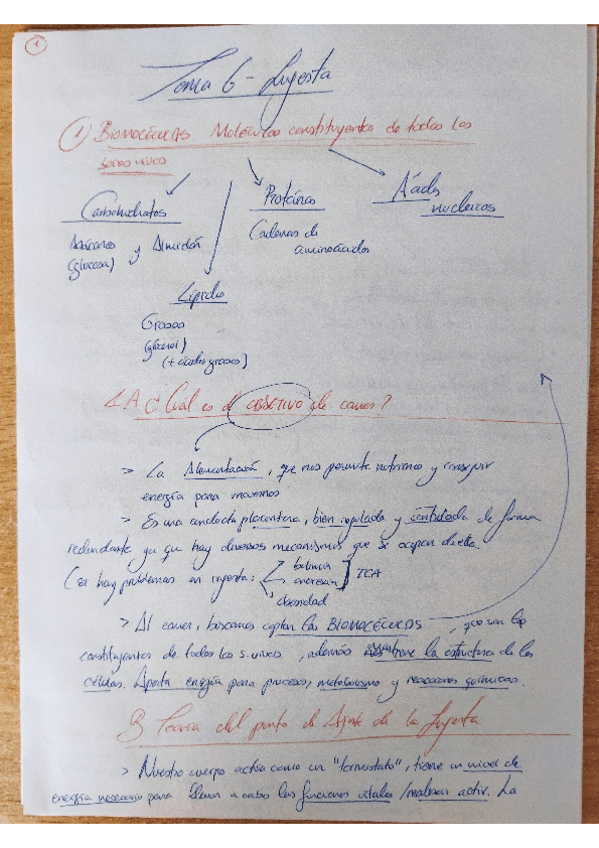 1
Tema 6 - Ingesta
1) BIOMOLÉCULAS Moléculas constituyentes de todos los
seres vivos
Carbohidratos
Azúcares y Almidón
(glucosa)
Proteínas
Cadenas de
aminoácidos
Ácidos
nucleicos
Lípidos
Grasas
(glicerol)
(+ ácidos grasos)
1.A ¿Cuál es el OBJETIVO de comer?
> La Alimentación, que nos permite nutrirnos y conseguir
energía para movernos
> Es una conducta placentera, bien regulada y controlada de forma
redundante ya que hay diversos mecanismos que se ocupan de ella.
(si hay problemas en ingesta:
bulimia
anorexia
obesidad
TCA
> Al comer, buscamos captar las BIOMOLÉCULAS, que son los
constituyentes de todos los s. vivos, además mantiene la estructura de las
células. Aporta energía para procesos, metabolismo y reacciones químicas.
B) Teoría del punto de Ajuste de la Ingesta
> Nuestro cuerpo actúa como un "termostato", tiene un nivel de
energía necesario para llevar a cabo las funciones vitales / realizar activ. La